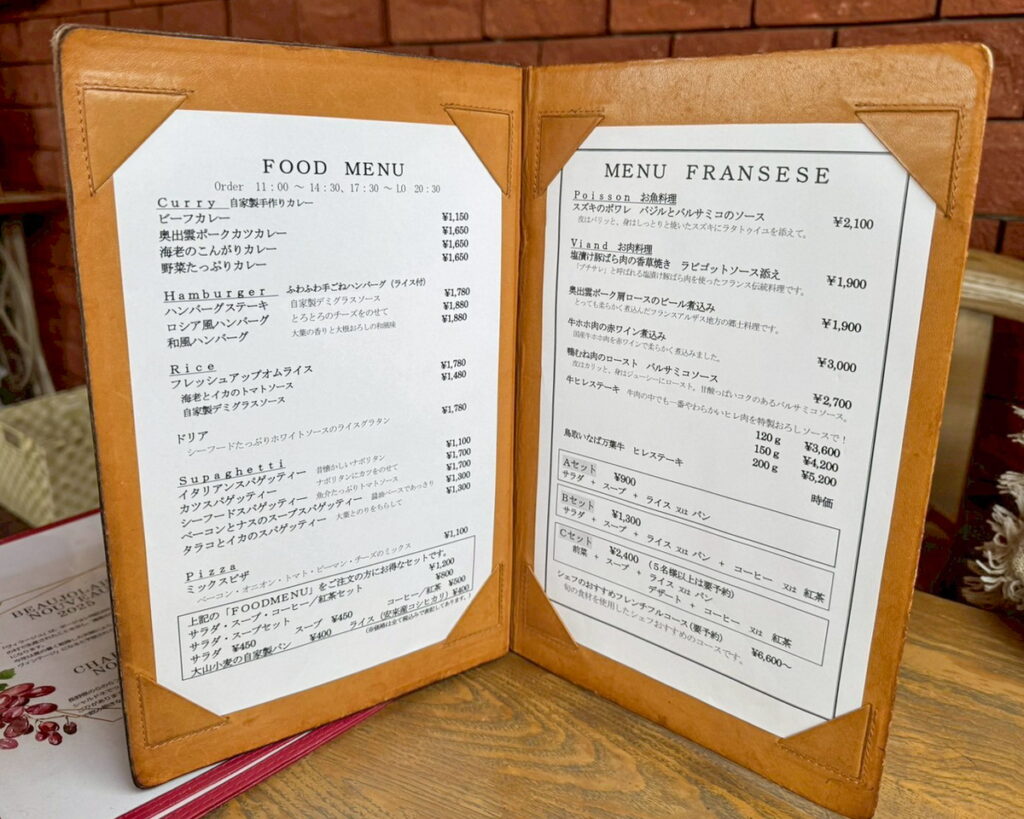 FOOD MENU
Order 11:00 ～ 14:30、17:30 ～ LO 20:30
Curry 自家製手作りカレー
ビーフカレー ¥1,150
奥出雲ポークカツカレー ¥1,650
海老のこんがりカレー ¥1,650
野菜たっぷりカレー ¥1,650
Hamburger ふわふわ手ごねハンバーグ (ライス付)
ハンバーグステーキ 自家製デミグラスソース ¥1,780
ロシア風ハンバーグ とろとろのチーズをのせて ¥1,880
和風ハンバーグ 大葉の香りと大根おろしの和風味 ¥1,880
Rice
フレッシュアップオムライス
海老とイカのトマトソース ¥1,780
自家製デミグラスソース ¥1,480
ドリア ¥1,780
シーフードたっぷりホワイトソースのライスグラタン
Supaghetti
イタリアンスパゲッティー 昔懐かしいナポリタン ¥1,100
カツスパゲッティー ナポリタンにカツをのせて ¥1,700
シーフードスパゲッティー 魚介たっぷりトマトソース ¥1,700
ベーコンとナスのスープスパゲッティー 醤油ベースであっさり ¥1,300
タラコとイカのスパゲッティー 大葉とのりをちらして ¥1,300
Pizza
ミックスピザ ¥1,100
ベーコン・オニオン・トマト・ピーマン・チーズのミックス
上記の「FOODMENU」をご注文の方にお得なセットです。
サラダ・スープ・コーヒー/紅茶セット ¥1,200
サラダ・スープセット ¥800
サラダ ¥450 スープ ¥450 コーヒー/紅茶 ¥500
大山小麦の自家製パン ¥400 ライス (安来産コシヒカリ) ¥400
(※価格は全て税込みで表記してあります。)
MENU FRANSESE
Poisson お魚料理
スズキのポワレ バジルとバルサミコのソース ¥2,100
皮はパリッと、身はしっとりと焼いたスズキにラタトゥイユを添えて。
Viand お肉料理
塩漬け豚ばら肉の香草焼き ラビゴットソース添え ¥1,900
「プチサレ」と呼ばれる塩漬け豚ばら肉を使ったフランス伝統料理です。
奥出雲ポーク肩ロースのビール煮込み ¥1,900
とっても柔らかく煮込んだフランスアルザス地方の郷土料理です。
牛ホホ肉の赤ワイン煮込み ¥3,000
国産牛ホホ肉を赤ワインで柔らかく煮込みました。
鴨むね肉のロースト バルサミコソース ¥2,700
皮はカリッと、身はジューシーにロースト。甘酸っぱいコクのあるバルサミコソース。
牛ヒレステーキ 牛肉の中でも一番やわらかいヒレ肉を特製おろしソースで！
120g ¥3,600
150g ¥4,200
200g ¥5,200
鳥取いなば万葉牛 ヒレステーキ 時価
Aセット ¥900
サラダ + スープ + ライス 又は パン
Bセット ¥1,300
サラダ + スープ + ライス 又は パン + コーヒー 又は 紅茶
Cセット ¥2,400 (5名様以上は要予約)
前菜 + スープ + ライス 又は パン
デザート + コーヒー 又は 紅茶
シェフのおすすめフレンチフルコース(要予約)
旬の食材を使用したシェフおすすめのコースです。 ¥6,600～
BEAUJOLAI
NOUVEAU
2025
CHA
NO